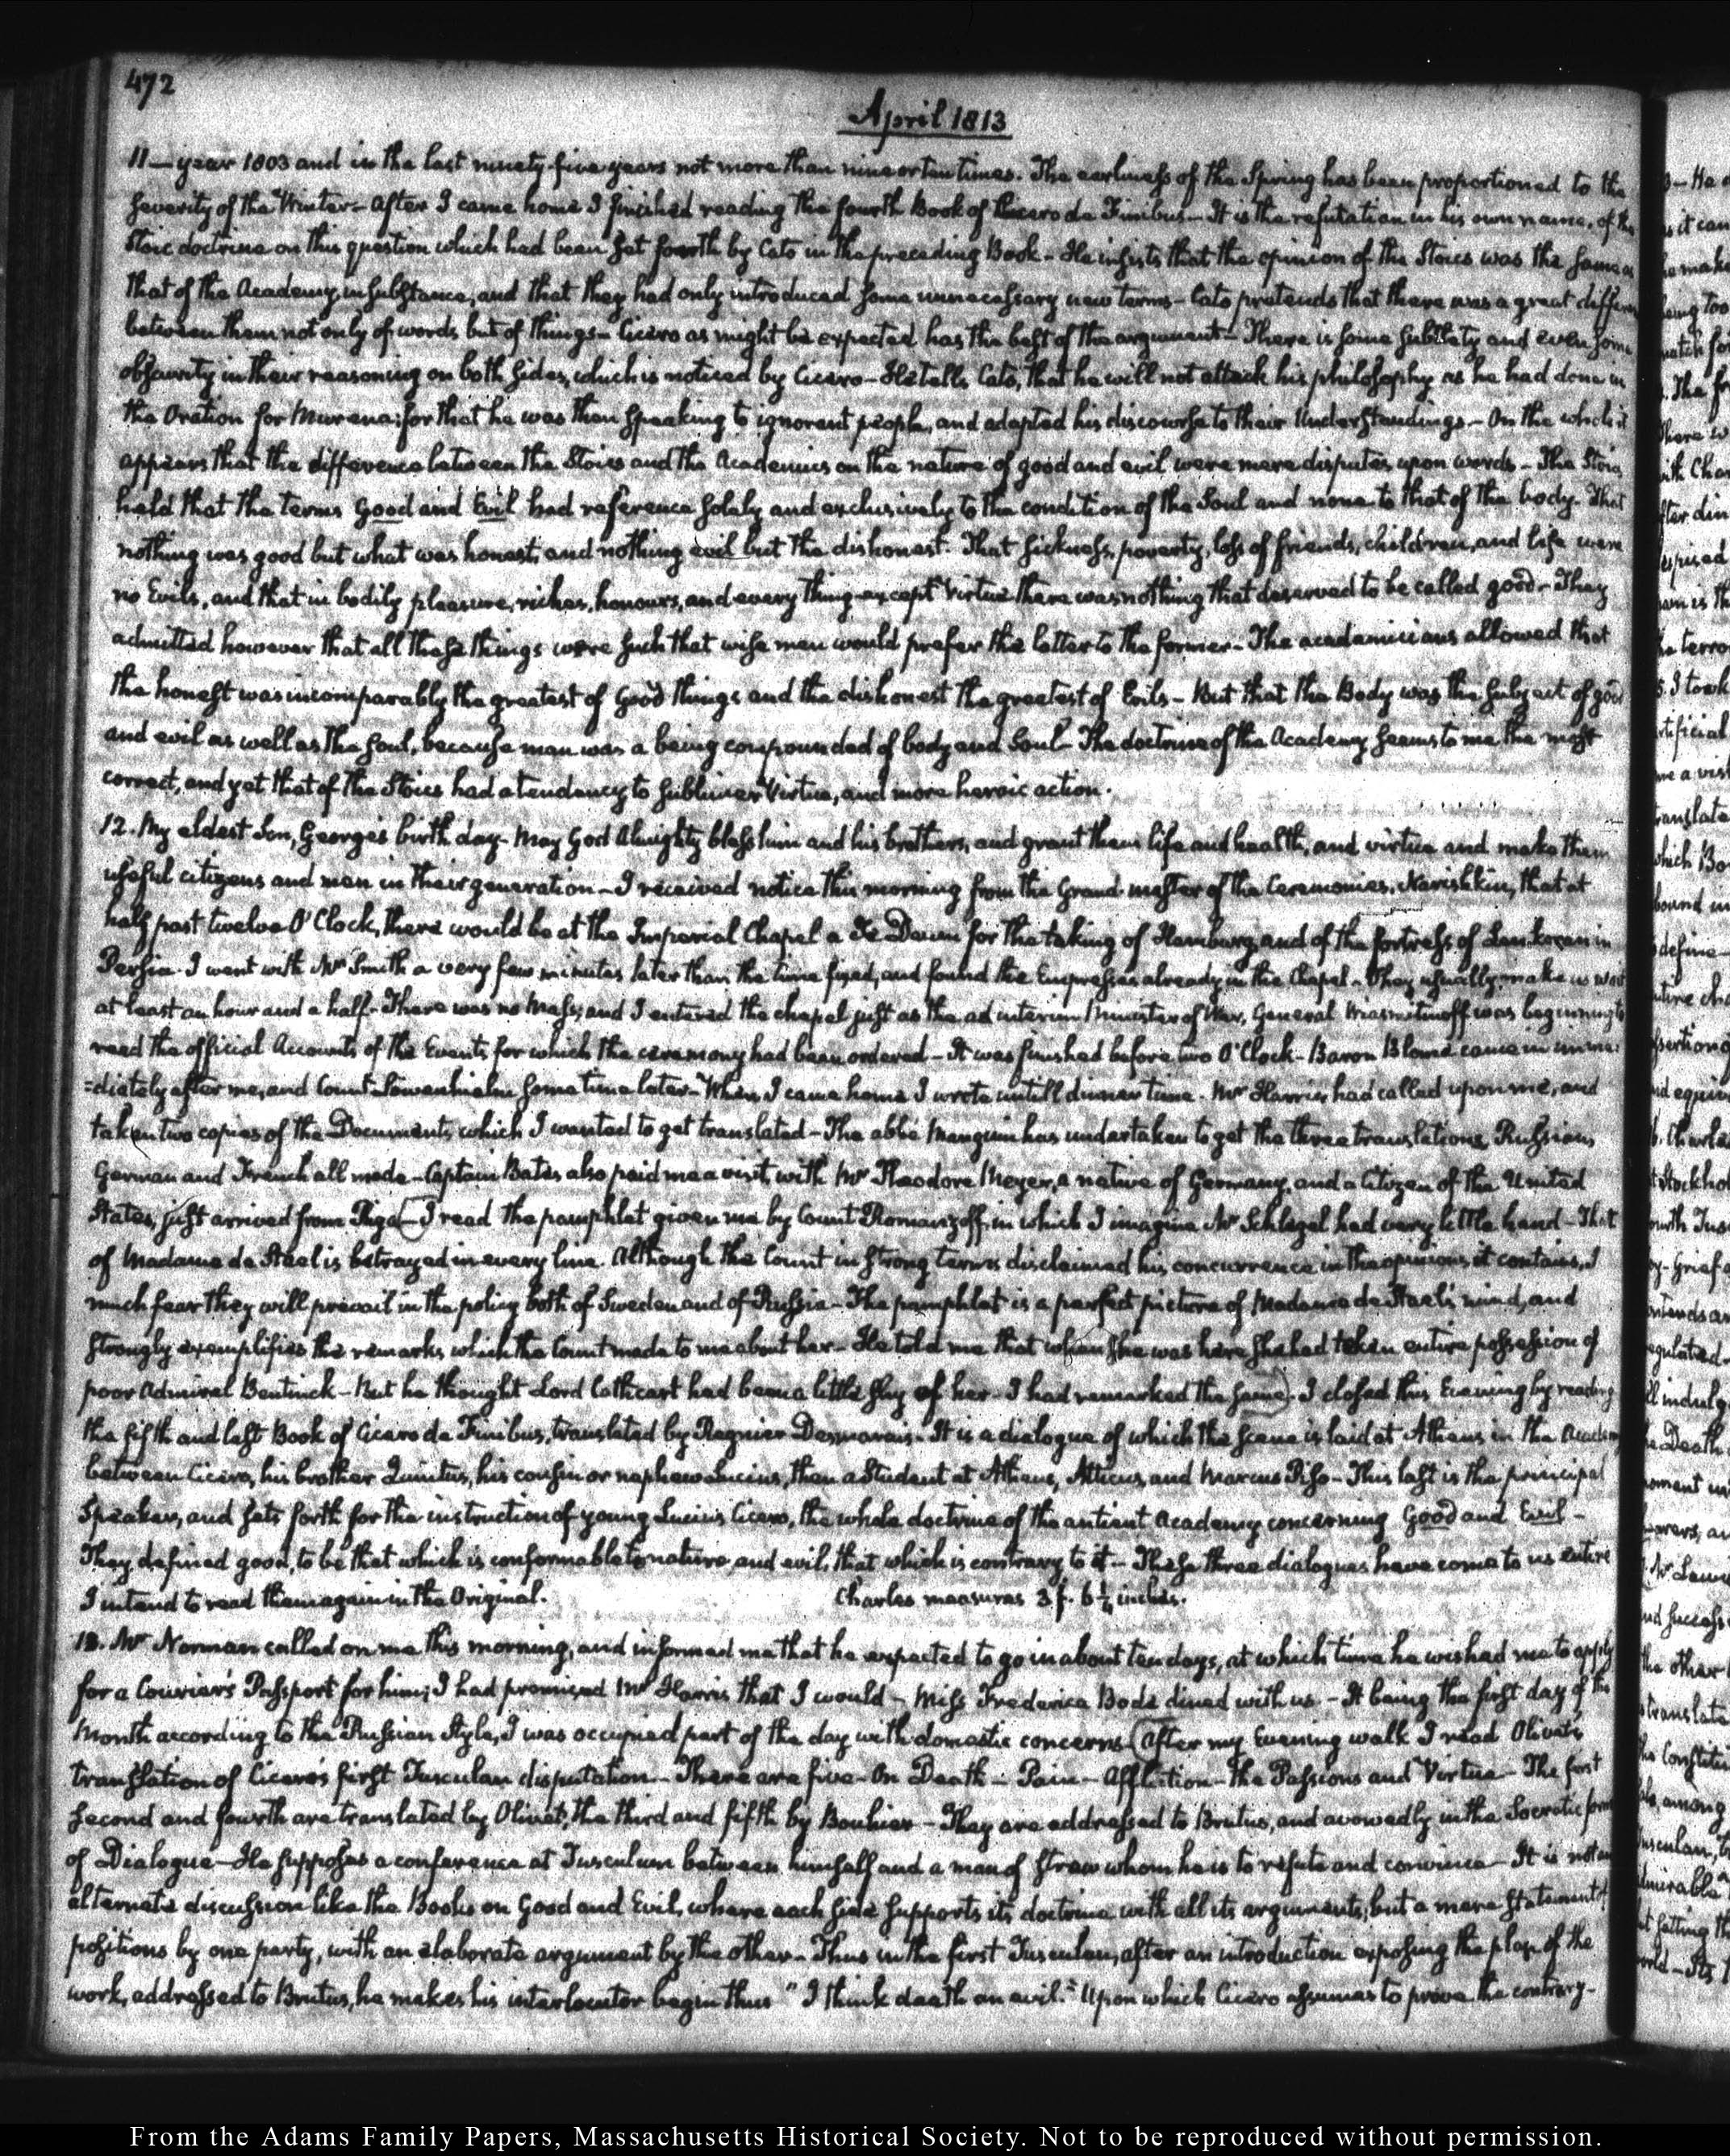 472
April 1813
11 — year 1803 and in the last ninety-five years not more than nine or ten times. The earliness of the Spring has been proportioned to the
severity of the Winter — After I came home I finished reading the fourth Book of Cicero de Finibus — It is the refutation in his own name, of the
Stoic doctrine on this question which had been set fourth by Cato in the preceding Book — He insists that the opinion of the Stoics was the same as
that of the Academy in substance, and that they had only introduced some unnecessary new terms — Cato pretends that there was a great differen
between them not only of words but of things — Cicero as might be expected has the best of the argument — There is some subtlety and even some
obscurity in their reasoning on both sides, which is noticed by Cicero — He tells Cato, that he will not attack his philosophy as he had done in
the Oration for Murena; for that he was then speaking to ignorant people, and adapted his discourse to their Understandings — On the whole it
appears that the difference between the Stoics and the Academics on the nature of good and evil were mere disputes upon words — The Stoics
held that the terms Good and Evil had reference solely and exclusively to the condition of the Soul and none to that of the body. That
nothing was good but what was honest, and nothing evil but the dishonest. That sickness, poverty, loss of friends, children, and life were
no Evils, and that in bodily pleasure, riches, honours, and every thing except Virtue there was nothing that deserved to be called good — They
admitted however that all these things were such that wise men would prefer the latter to the former — The academicians allowed that
the honest was incomparably the greatest of Good things and the dishonest the greatest of Evils — But that the Body was the subject of good
and evil as well as the soul, because man was a being compounded of body and Soul — The doctrine of the Academy seems to me the most
correct, and yet that of the Stoics had a tendency to sublimer Virtue, and more heroic action.
12. My eldest Son, George's birth day — May God Almighty bless him and his brothers, and grant them life and health, and virtue and make them
useful citizens and men in their generation — I received notice this morning from the Grand master of the Ceremonies, Narishkin, that at
half past twelve O'Clock, there would be at the Imperial Chapel a Te Deum for the taking of Hamburg and of the fortress of Lenkoran in
Persia. I went with Mr Smith a very few minutes later than the time fixed, and found the Empresses already in the Chapel — They usually make us wait
at least an hour and a half — There was no Mass; and I entered the chapel just as the ad interim Minister of War, General Wiasmitinoff was beginning to
read the official Accounts of the Events for which the ceremony had been ordered — It was finished before two O'Clock — Baron Blome came in imme:
=diately after me, and Count Löwenhielm some time later — When I came home I wrote untill dinner time. Mr Harris had called upon me, and
taken two copies of the Documents which I wanted to get translated — The abbé Manguin has undertaken to get the three translations, Russian,
German and French all made — Captain Bates also paid me a visit, with Mr Theodore Meyer, a native of Germany, and a Citizen of the United
States, just arrived from Riga — I read the pamphlet given me by Count Romanzoff, in which I imagine Mr Schlegel had very little hand — That
of Madame de Stael is betrayed in every line. Although the Count in strong terms disclaimed his concurrence in the opinions it contains, I
much fear they will prevail in the policy both of Sweden and of Russia — The pamphlet is a perfect picture of Madame de Stael's mind, and
strongly exemplifies the remarks which the Count made to me about her — He told me that when she was here she had taken entire possession of
poor Admiral Bentinck — But he thought Lord Cathcart had been a little shy of her — I had remarked the same. I closed this Evening by reading
the fifth and last Book of Cicero de Finibus, translated by Regnier Desmarais — It is a dialogue of which the scene is laid at Athens in the Academ
between Cicero, his brother Quintus, his cousin or nephew Lucius, then a Student at Athens, Atticus, and Marcus Piso — This last is the principal
Speaker, and sets forth for the instruction of young Lucius Cicero, the whole doctrine of the antient Academy concerning Good and Evil —
They defined good, to be that which is conformable to nature, and evil, that which is contrary to it — These three dialogues have come to us entire
I intend to read them again in the Original. Charles measures 3 f. 6 1/4 inches.
13. Mr Norman called on me this morning, and informed me that he expected to go in about ten days, at which time he wished me to apply
for a Courier's Passport for him; I had promised Mr Harris that I would — Miss Frederica Bode dined with us. — It being the first day of the
Month according to the Russian Style, I was occupied part of the day with domestic concerns — After my Evening walk I read Olivet's
translation of Cicero's first Tusculan disputation — There are five — On Death — Pain — Affliction — The Passions and Virtue — The first
second and fourth are translated by Olivet, the third and fifth by Bouhier — They are addressed to Brutus, and avowedly in the Socratic form
of Dialogue — He supposes a conference at Tusculum between himself and a man of straw whom he is to refute and convince — It is not an
alternate discussion like the Books on Good and Evil, where each side supports its doctrine with all its arguments; but a mere statement of
positions by one party, with an elaborate argument by the other — Thus in the first Tusculan, after an introduction exposing the plan of the
work, addressed to Brutus, he makes his interlocutor begin thus "I think death an evil." Upon which Cicero assumes to prove the contrary —
From the Adams Family Papers, Massachusetts Historical Society. Not to be reproduced without permission.